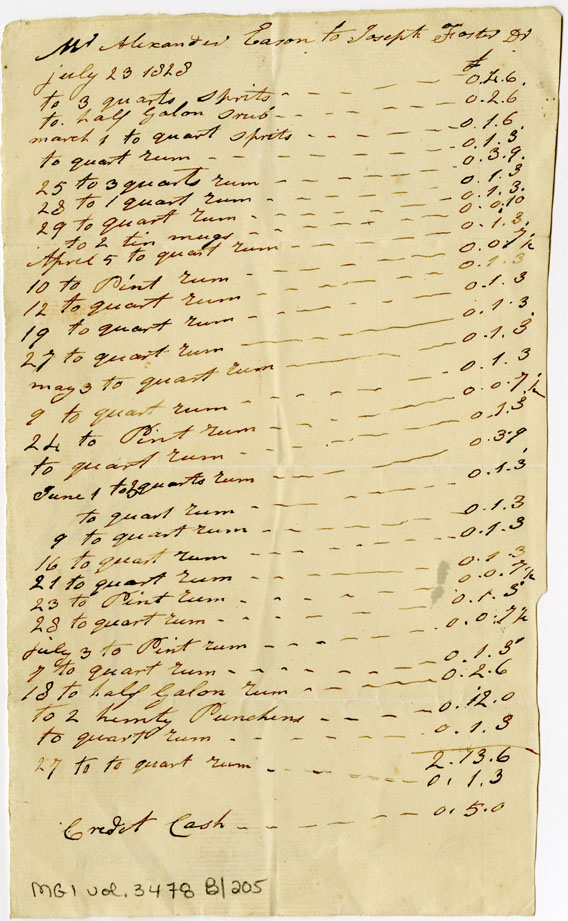 Mr Alexander Eason to Joseph Foster Dr
july 23 1828 £
to 3 quarts sprits - - - - 0.4.6.
to half Galon srub - - - - 0.2.6
march 1 to quart sprits - - - - 0.1.6.
to quart rum - - - - 0.1.3
25 to 3 quarts rum - - - - 0.3.9.
28 to 1 quart rum - - - - 0.1.3
29 to quart rum - - - - 0.1.3.
to 2 tin mugs - - - - 0.0.10
April 5 to quart rum - - - - 0.1.3.
10 to Pint rum - - - - 0.0.7½
12 to quart rum - - - - 0.1.3
19 to quart rum - - - - 0.1.3
27 to quart rum - - - - 0.1.3.
may 3 to quart rum - - - - 0.1.3
9 to quart rum - - - - 0.1.3
24 to Pint rum - - - - 0.0.7½
to quart rum - - - - 0.1.3
June 1 to 3 quarts rum - - - - 0.3.9
to quart rum - - - - 0.1.3
9 to quart rum - - - - 0.1.3
16 to quart rum - - - - 0.1.3
21 to quart rum - - - - 0.1.3
23 to Pint rum - - - - 0.0.7½
28 to quart rum - - - - 0.1.3
july 3 to Pint rum - - - - 0.0.7½
7 to quart rum - - - - 0.1.3
18 to half Galon rum - - - - 0.2.6
to 2 Punchens - - - - 0.12.0
to quart rum - - - - 0.1.3
2.13.6
27 to to quart rum - - - - 0.1.3
Credit Cash - - - - 0.5.0
MG1 vol. 3478 B/205